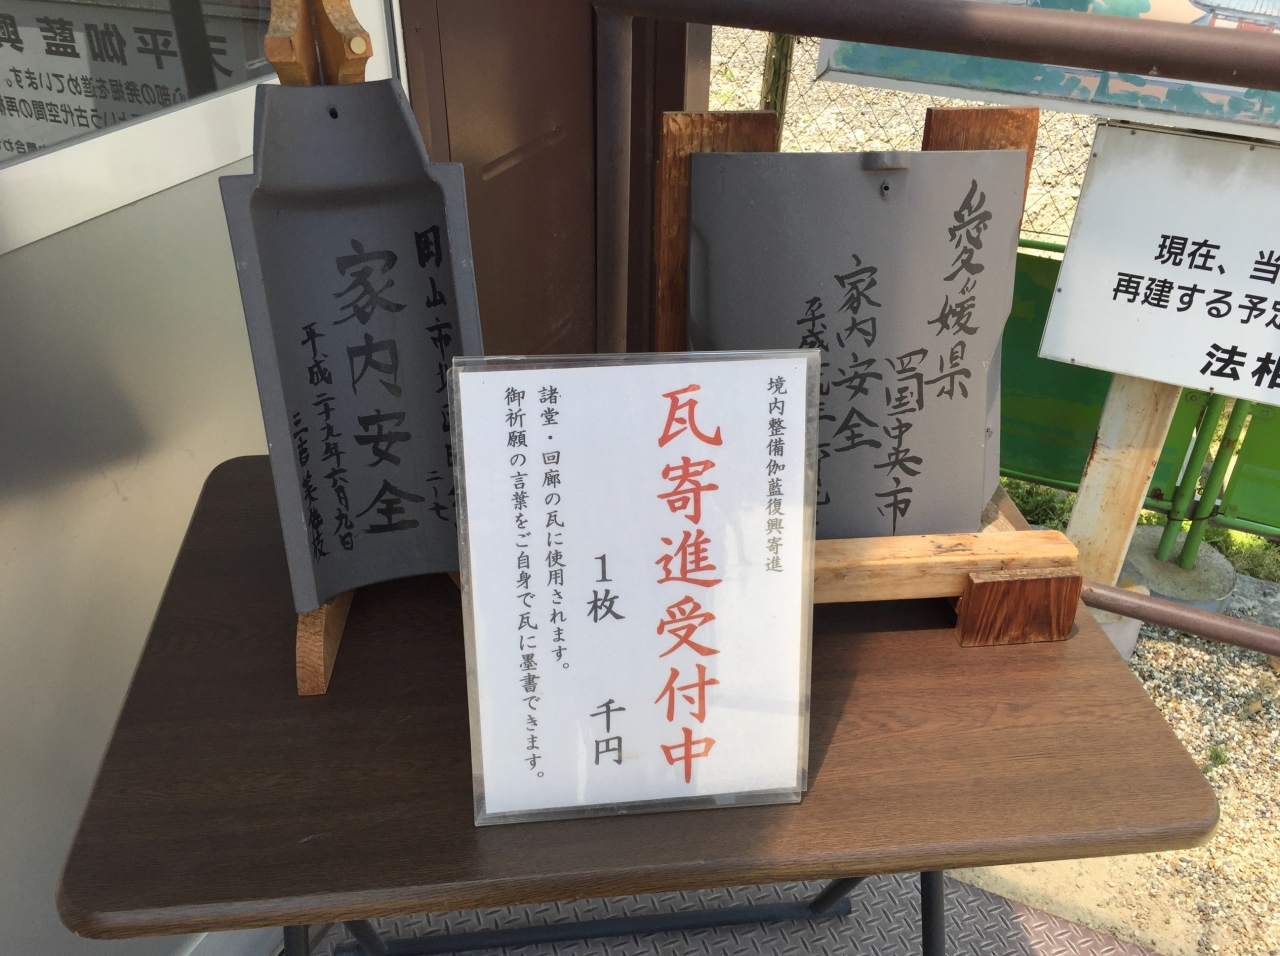 境内整備伽藍復興寄進
瓦寄進受付中
1枚 千円
諸堂・回廊の瓦に使用されます。
御祈願の言葉をご自身で瓦に墨書できます。
愛媛県
四国中央市
家内安全
平成
岡山市
家内安全
平成二十九年六月九日
現在、当
再建する予定
法相
天平伽藍